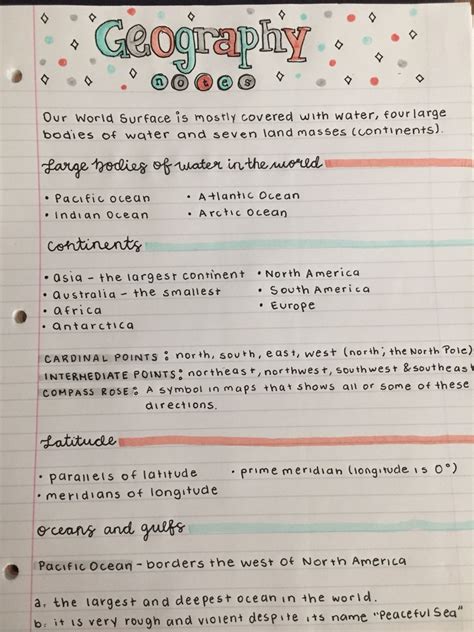 Geography
notes
Our World Surface is mostly covered with water, four large
bodies of water and seven land masses (continents).
Large bodies of water in the world
• Pacific Ocean • Atlantic Ocean
• Indian Ocean • Arctic Ocean
Continents
• asia - the largest continent • North America
• australia - the smallest • South America
• africa • Europe
• antarctica
CARDINAL POINTS : north, south, east, west (north; the North Pole)
INTERMEDIATE POINTS: northeast, northwest, southwest & southeast
COMPASS ROSE : A symbol in maps that shows all or some of these
directions.
Latitude
• parallels of latitude • prime meridian (longitude is 0°)
• meridians of longitude
Oceans and gulfs
Pacific Ocean - borders the west of North America
a. the largest and deepest ocean in the world.
b. it is very rough and violent despite its name "Peaceful Sea"